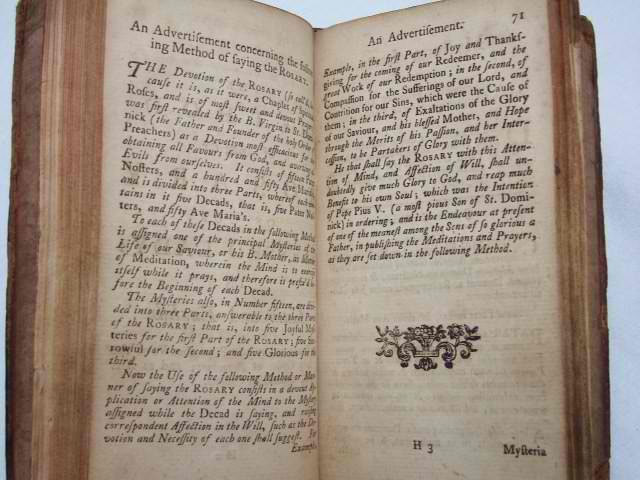 An Advertiſement concerning the
ing Method of ſaying the ROSARY.
THE Devotion of the ROSARY (ſo
cauſe it is, as it were, a Chaplet of
Roſes, and is of moſt ſweet and devout
was firſt revealed by the B. Virgin to St. Domi-
nick (the Father and Founder of the holy Order
Preachers) as a Devotion moſt efficacious for
obtaining all Favours from God, and averting
Evils from ourſelves. It conſiſts of fifteen Pater
Noſters, and a hundred and fifty Ave Maria's,
and is divided into three Parts, whereof each con-
tains in it five Decads, that is, five Pater Noſ-
ters, and fifty Ave Maria's.
To each of theſe Decads in the following Method
is aſſigned one of the principal Myſteries of the
Life of our Saviour, or his B. Mother, as Matter
of Meditation, wherein the Mind is to exerciſe
itſelf while it prays, and therefore is prefix'd be-
fore the Beginning of each Decad.
The Myſteries alſo, in Number fifteen, are divi-
ded into three Parts, anſwerable to the three Parts
of the ROSARY; that is, into five Joyful Myſ-
teries for the firſt Part of the ROSARY; five Sor-
rowful for the ſecond; and five Glorious for the
third.
Now the Uſe of the following Method or Man-
ner of ſaying the ROSARY conſiſts in a devout Ap-
plication or Attention of the Mind to the Myſtery
aſſigned while the Decad is ſaying, and raiſing
correſpondent Affection in the Will, ſuch as the De-
votion and Neceſſity of each one ſhall ſuggeſt. For
Example
An Advertiſement. 71
Example, in the firſt Part, of Joy and Thankſ-
giving for the coming of our Redeemer, and the
great Work of our Redemption; in the ſecond, of
Compaſſion for the Sufferings of our Lord, and
Contrition for our Sins, which were the Cauſe of
them; in the third, of Exaltations of the Glory
of our Saviour, and his bleſſed Mother, and Hope
through the Merits of his Paſſion, and her Inter-
ceſſion, to be Partakers of Glory with them.
He that ſhall ſay the ROSARY with this Atten-
tion of Mind, and Affection of Will, ſhall un-
doubtedly give much Glory to God, and reap much
Benefit to his own Soul; which was the Intention
of Pope Pius V. (a moſt pious Son of St. Domi-
nick) in ordering; and is the Endeavour at preſent
of one of the meaneſt among the Sons of ſo glorious a
Father, in publiſhing the Meditations and Prayers,
as they are ſet down in the following Method.
H 3 Myſteria